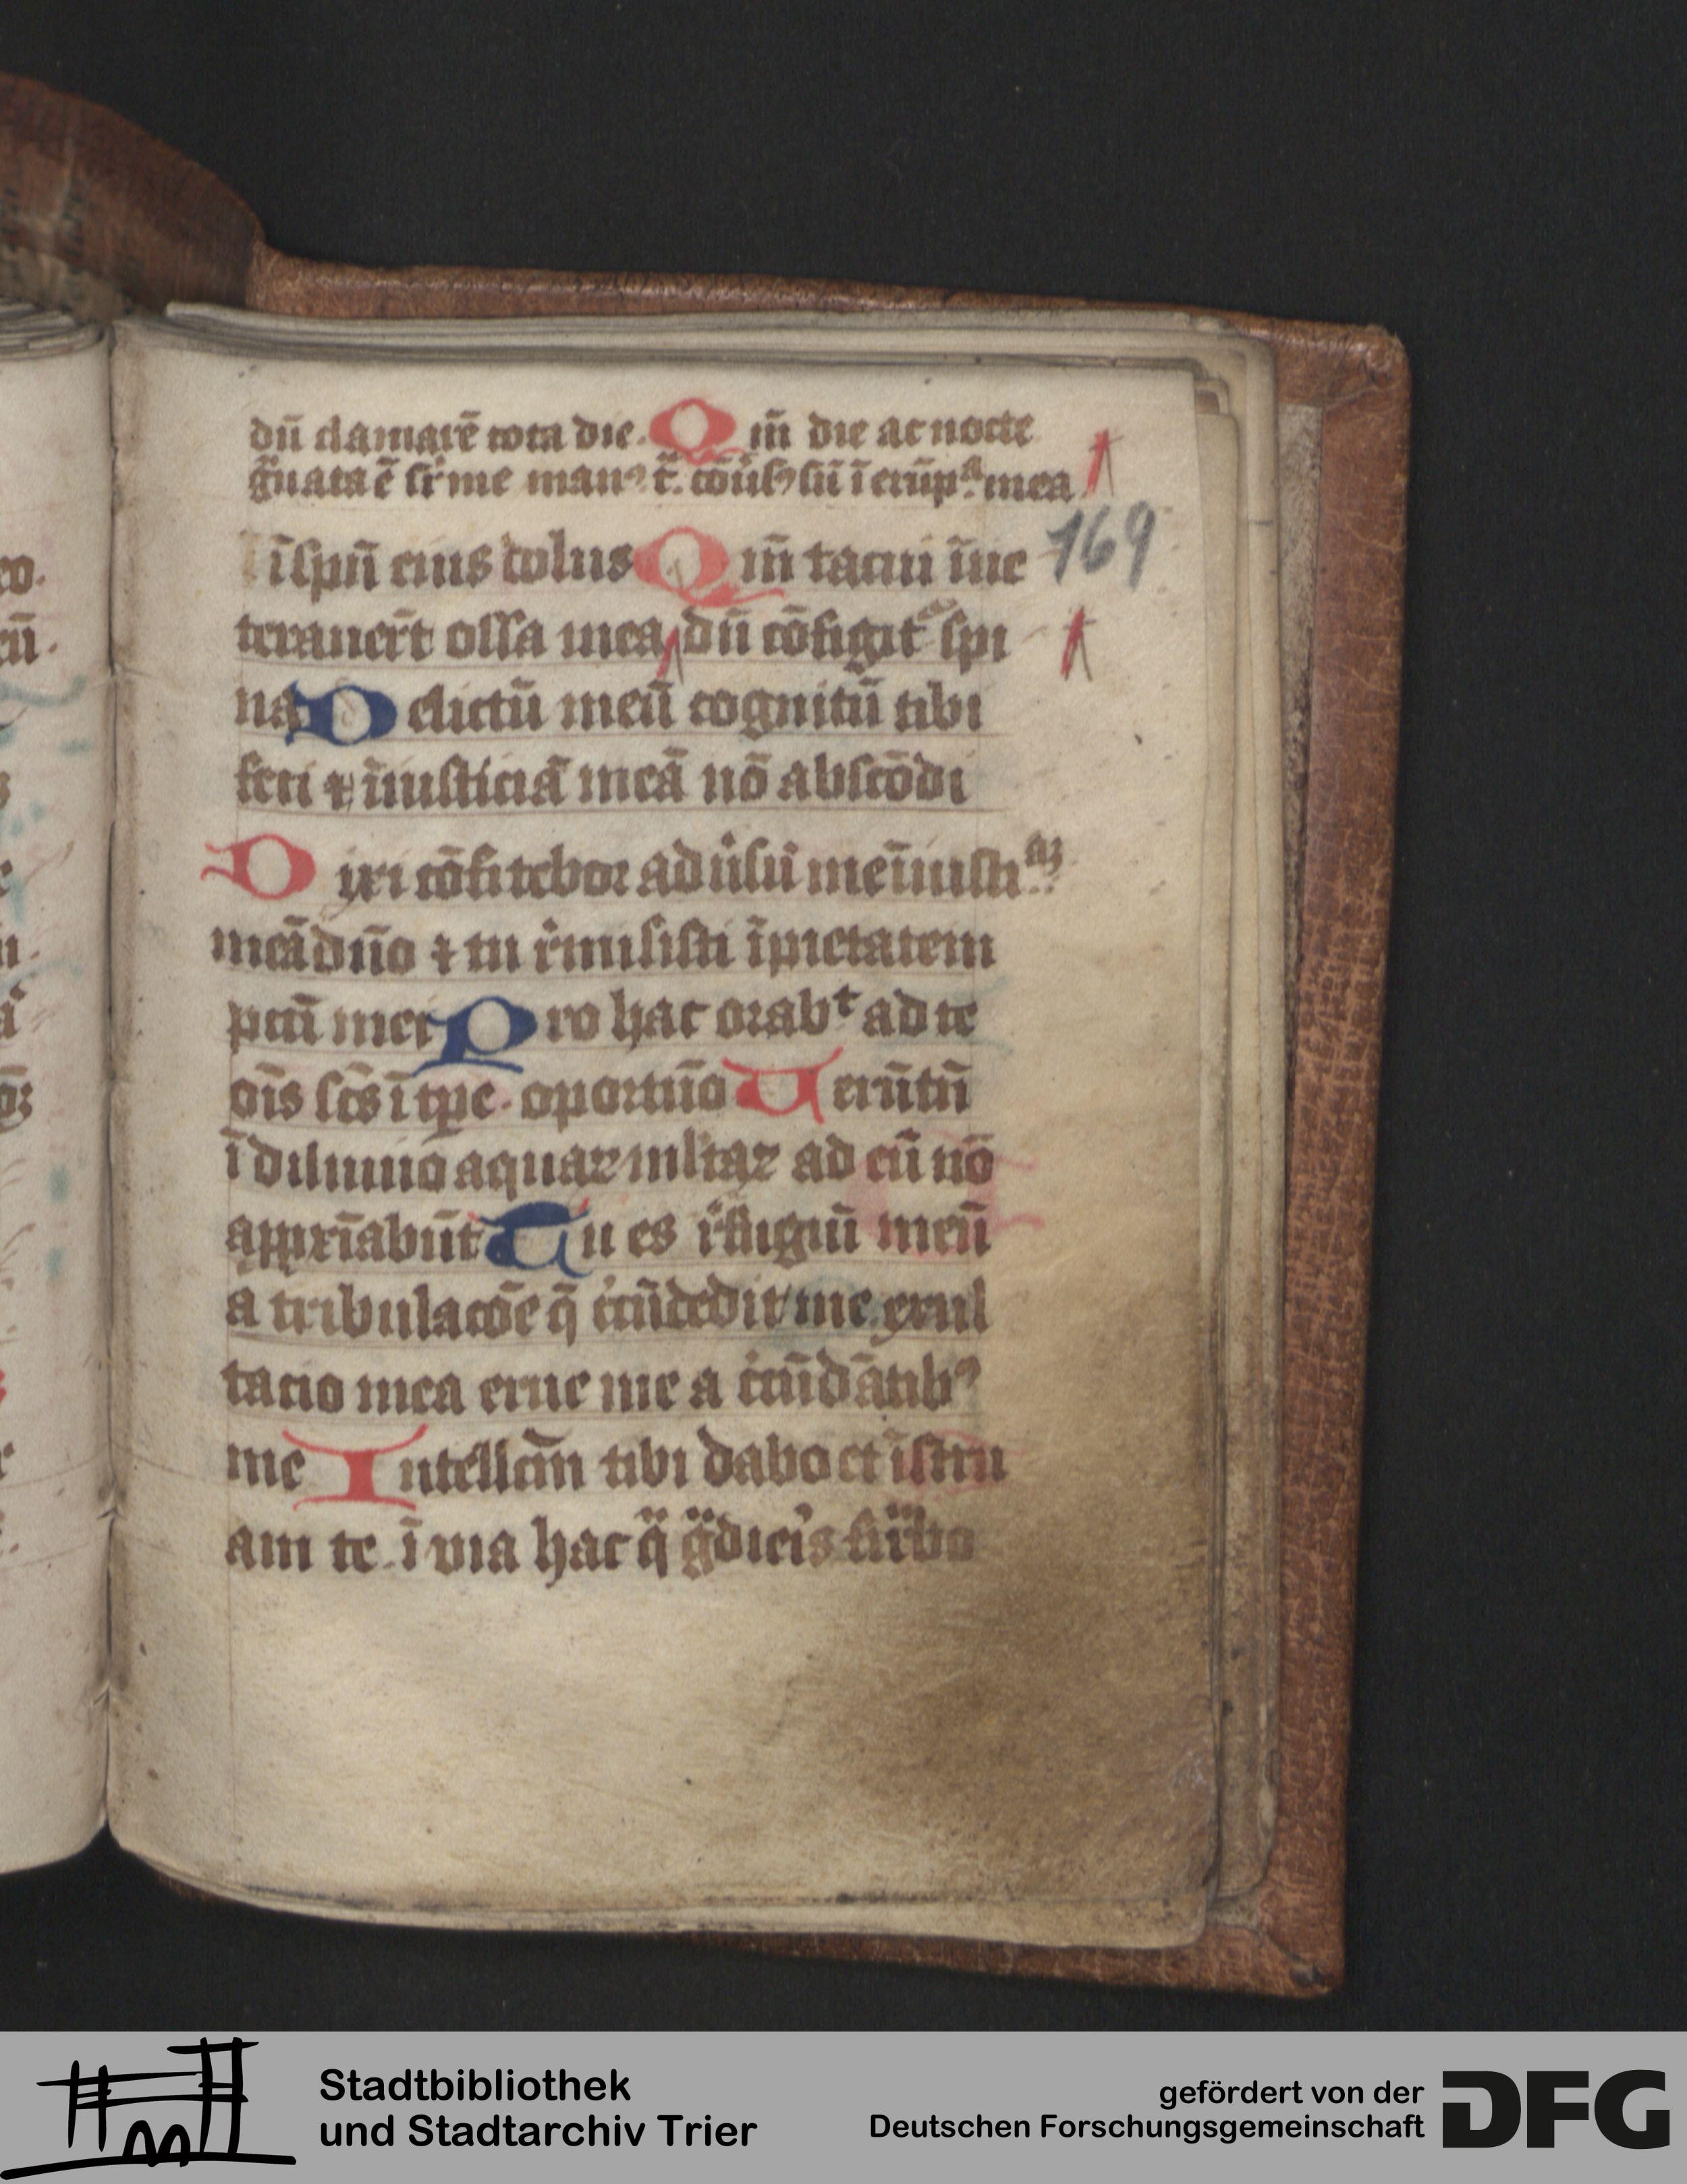 dū clamarē tota die. Qm̄ die ac nocte
g̃uata ē sr̄ me manꝰ t̄. cōūsꝰ sū ī erūpᵃ. mea
169
ī spū eius dolus Qm̄ tacui īue
terauer̄t ossa mea dū cōfigit᷑ spi
na Delictū meū cognitū tibi
feci ⁊ īiusticiā meā nō abscōdi
Dixi cōfitebor adūsū me īiustiᵃᵐ
meā dn̄o ⁊ tu r̄misisti īpietatem
pc̄ti mei Pro hac orabᵗ ad te
oīs sc̄s ī tp̄e oportūo Uerūtn̄
ī diluuio aquaꝝ ml̄taꝝ ad eū nō
apprīabūt Tu es r̄fugiū meū
a tribulacōe q̄ cīcūdedit me exul
tacio mea erue me a cīcūdātibꝰ
me Intellc̄m tibi dabo et īstru
am te ī uia hac q̄ g̃dieīs fir̄bo
Stadtbibliothek
und Stadtarchiv Trier
gefördert von der
Deutschen Forschungsgemeinschaft
DFG